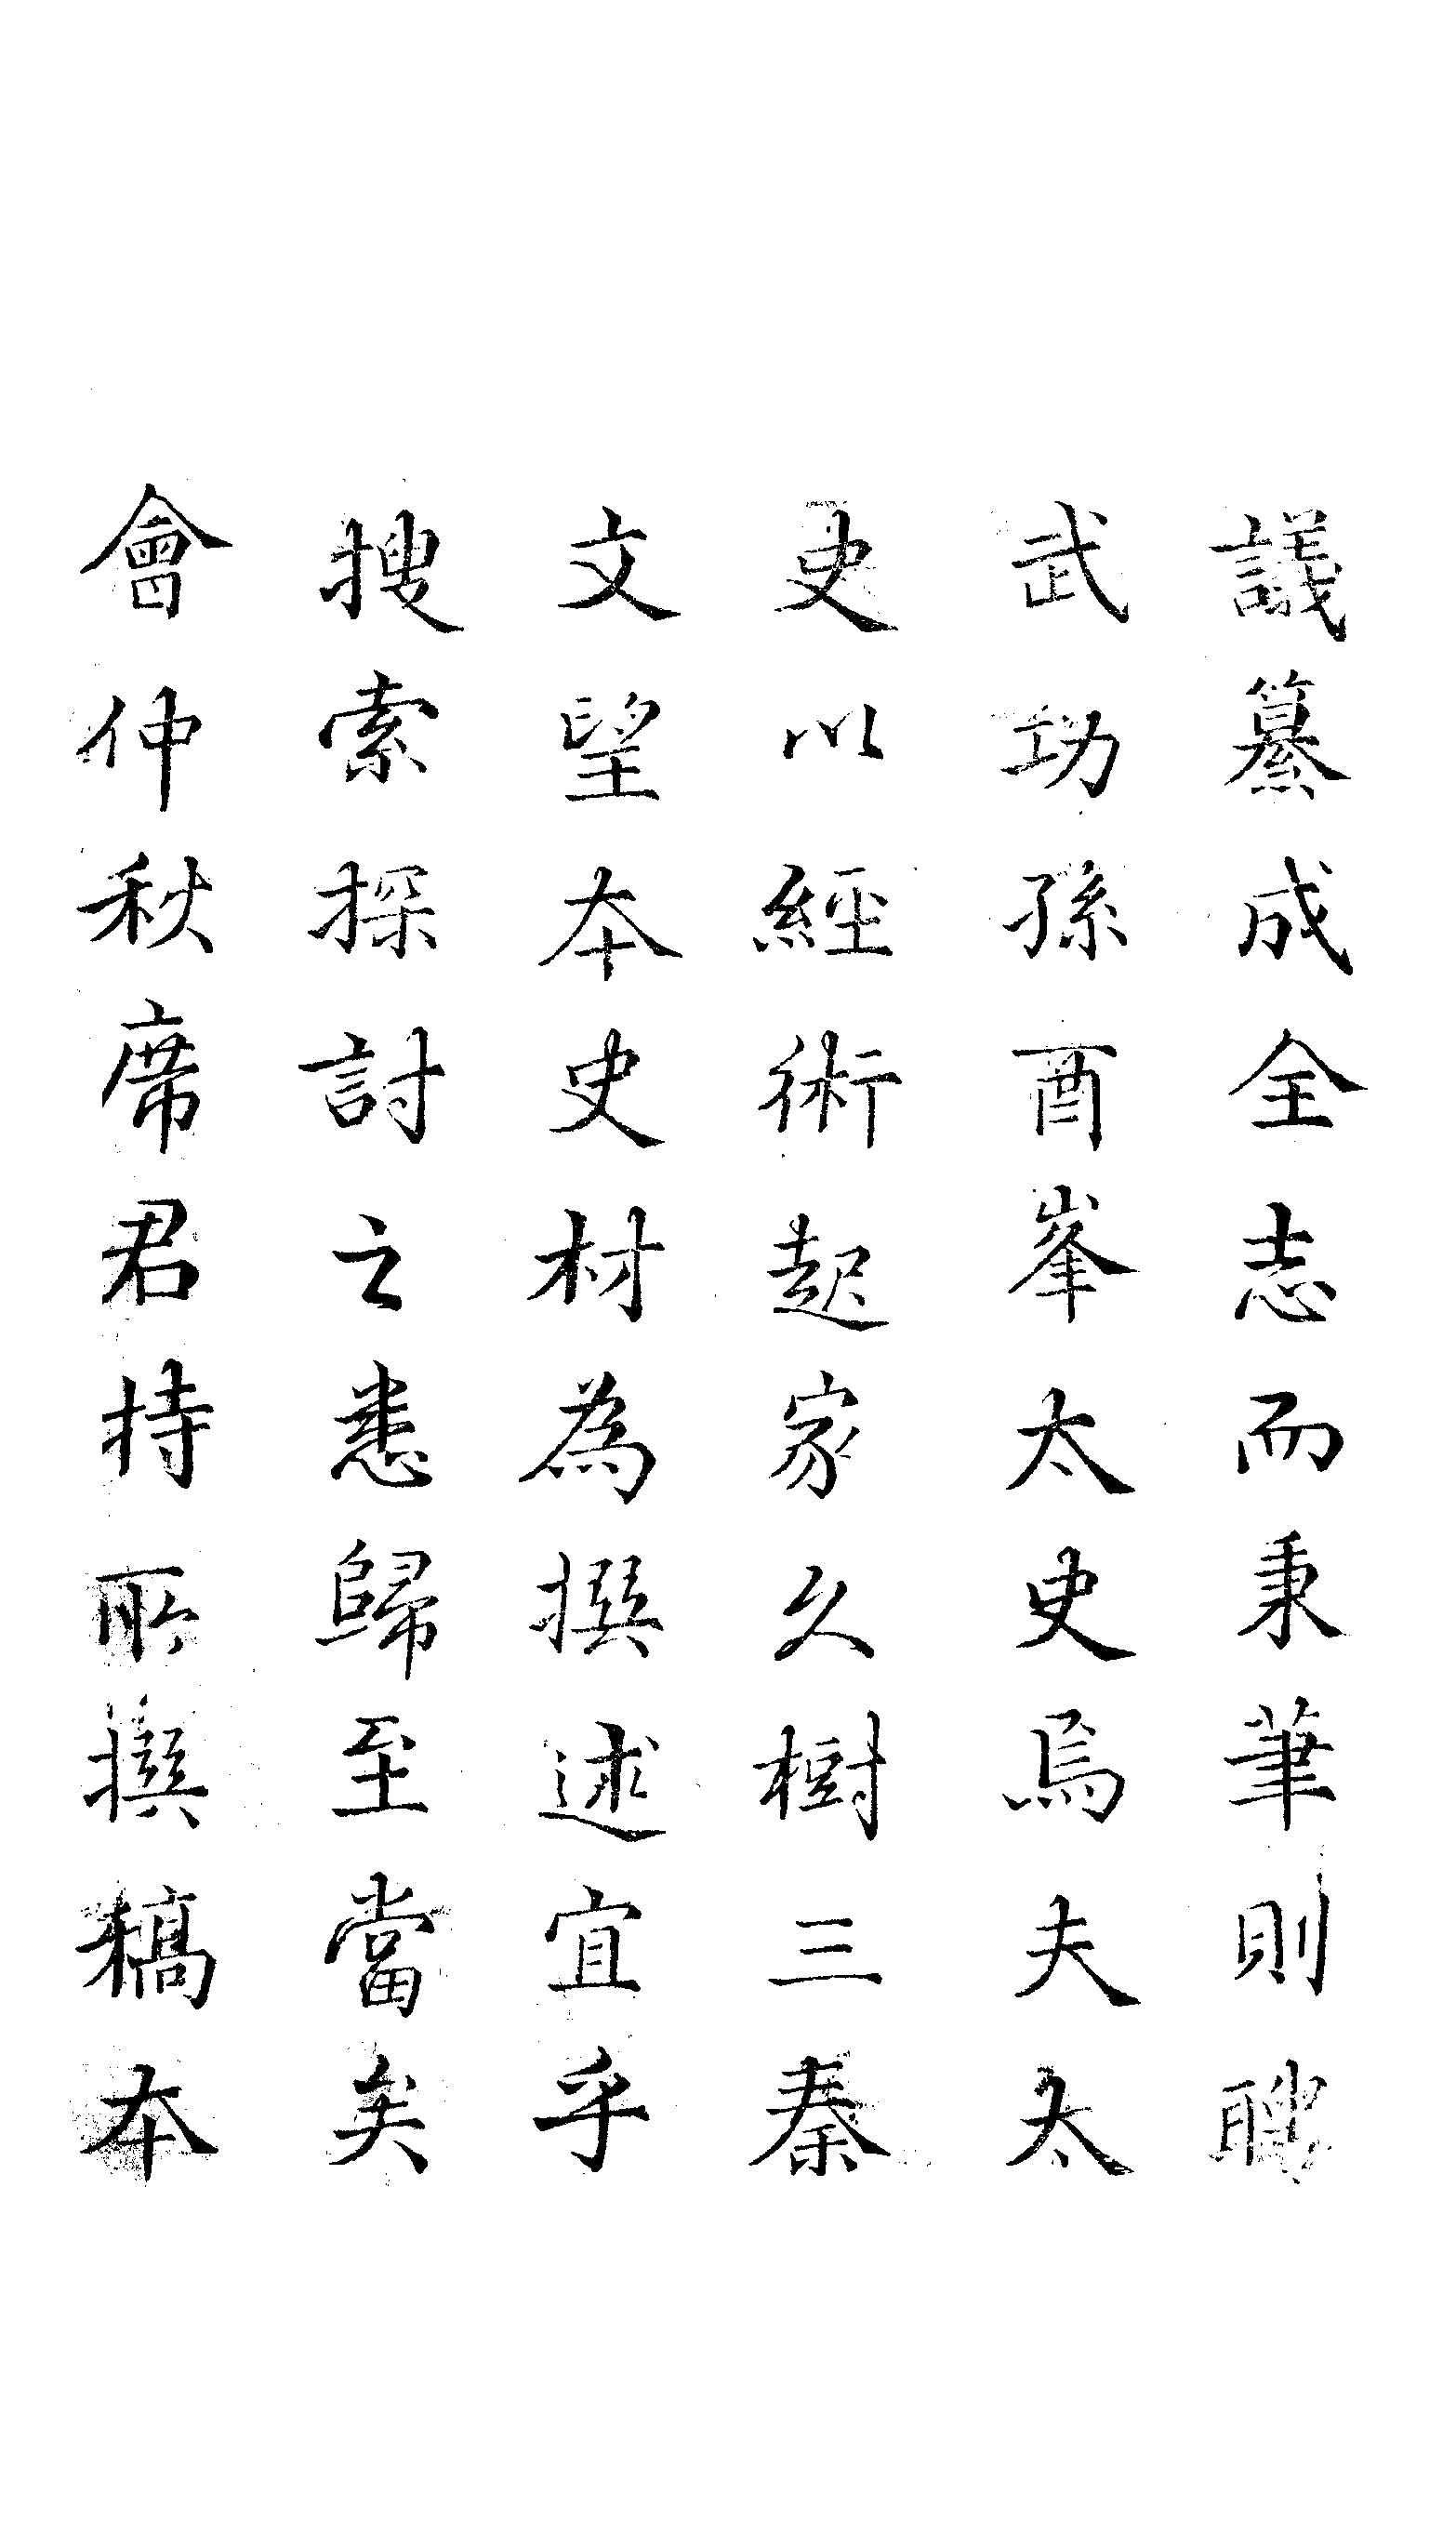 議纂成全志而秉筆則聘
武功孫酉峯太史焉夫太
史以經術起家久樹三秦
文望本史材為撰述宜乎
搜索探討之悉歸至當矣
會仲秋席君持所撰稿本